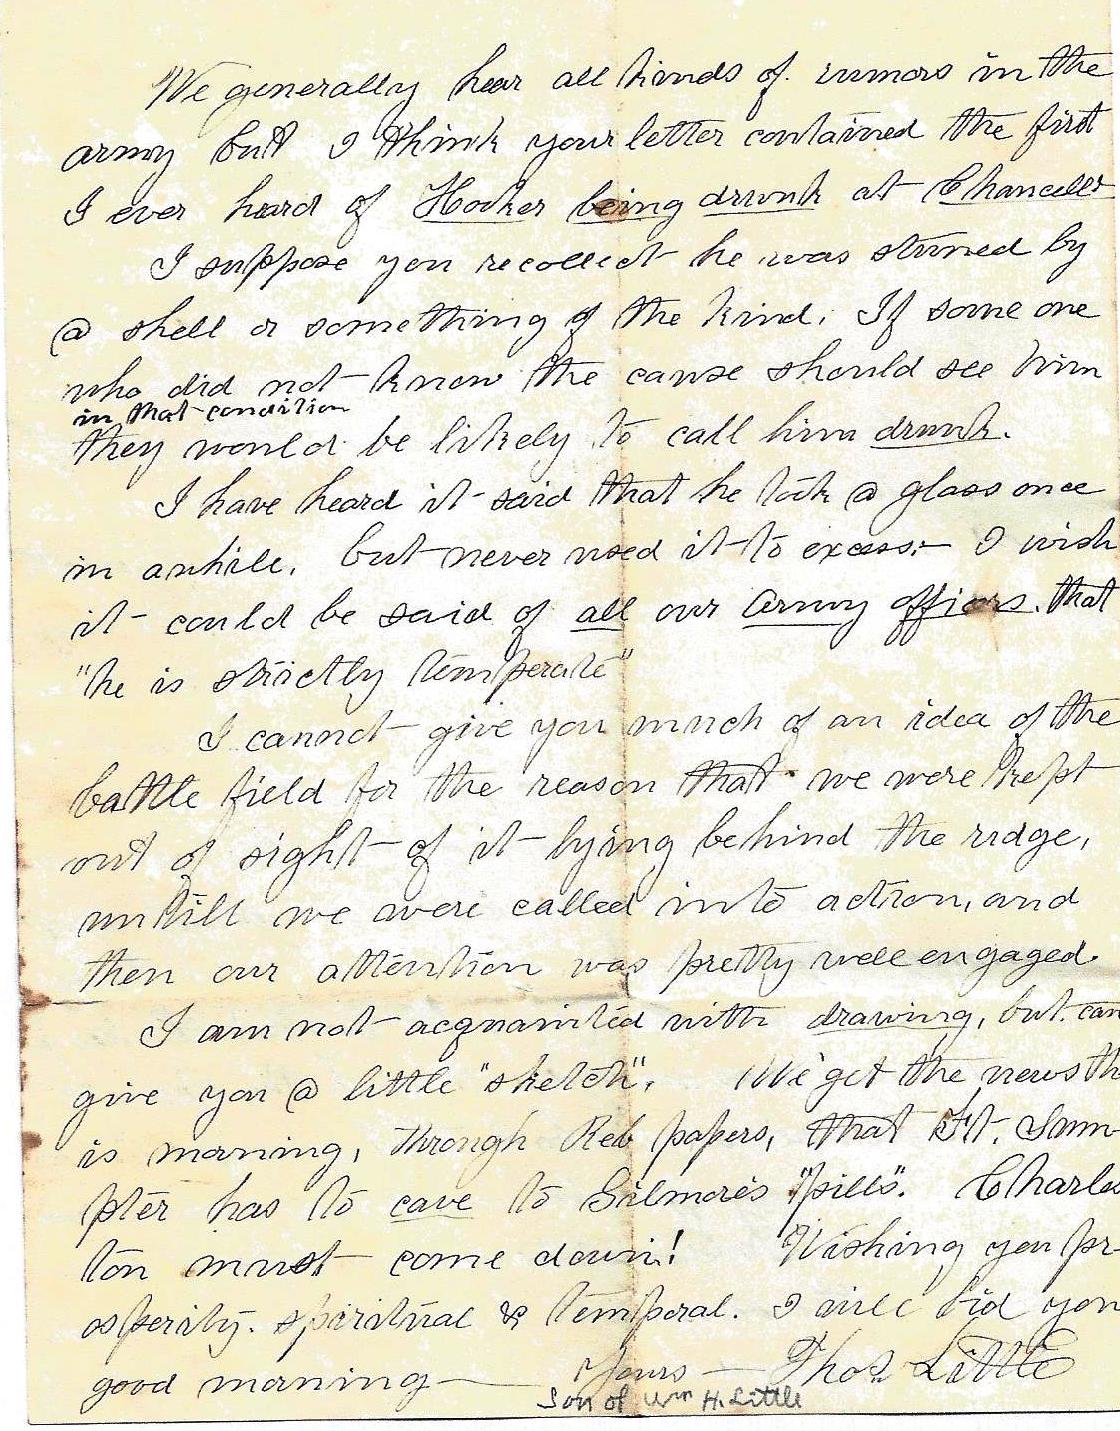 We generally hear all kinds of rumors in the
army but I think your letter contained the first
I ever heard of Hooker being drunk at Chancell
I suppose you recollect he was stuned by
a shell or something of the kind. If some one
who did not know the cause should see him
in that condition
they would be likely to call him drunk.
I have heard it said that he took a glass once
in awhile, but never used it to excess:— I wish
it could be said of all our Army officers. that
"he is strictly temperate"
I cannot give you much of an idea of the
battle field for the reason that we were kept
out of sight of it lying behind the ridge,
untill we were called into action, and
then our attention was pretty well engaged.
I am not acquainted with drawing, but can
give you a little "sketch". We get the news th
is morning, through Reb papers, that Ft. Sum-
pter has to cave to Gilmore's "pills". Charles
ton must come down! Wishing you pr-
osperity. spiritual & temporal. I will bid you
good morning — Yours — Thos. Little
Son of Wm H. Little